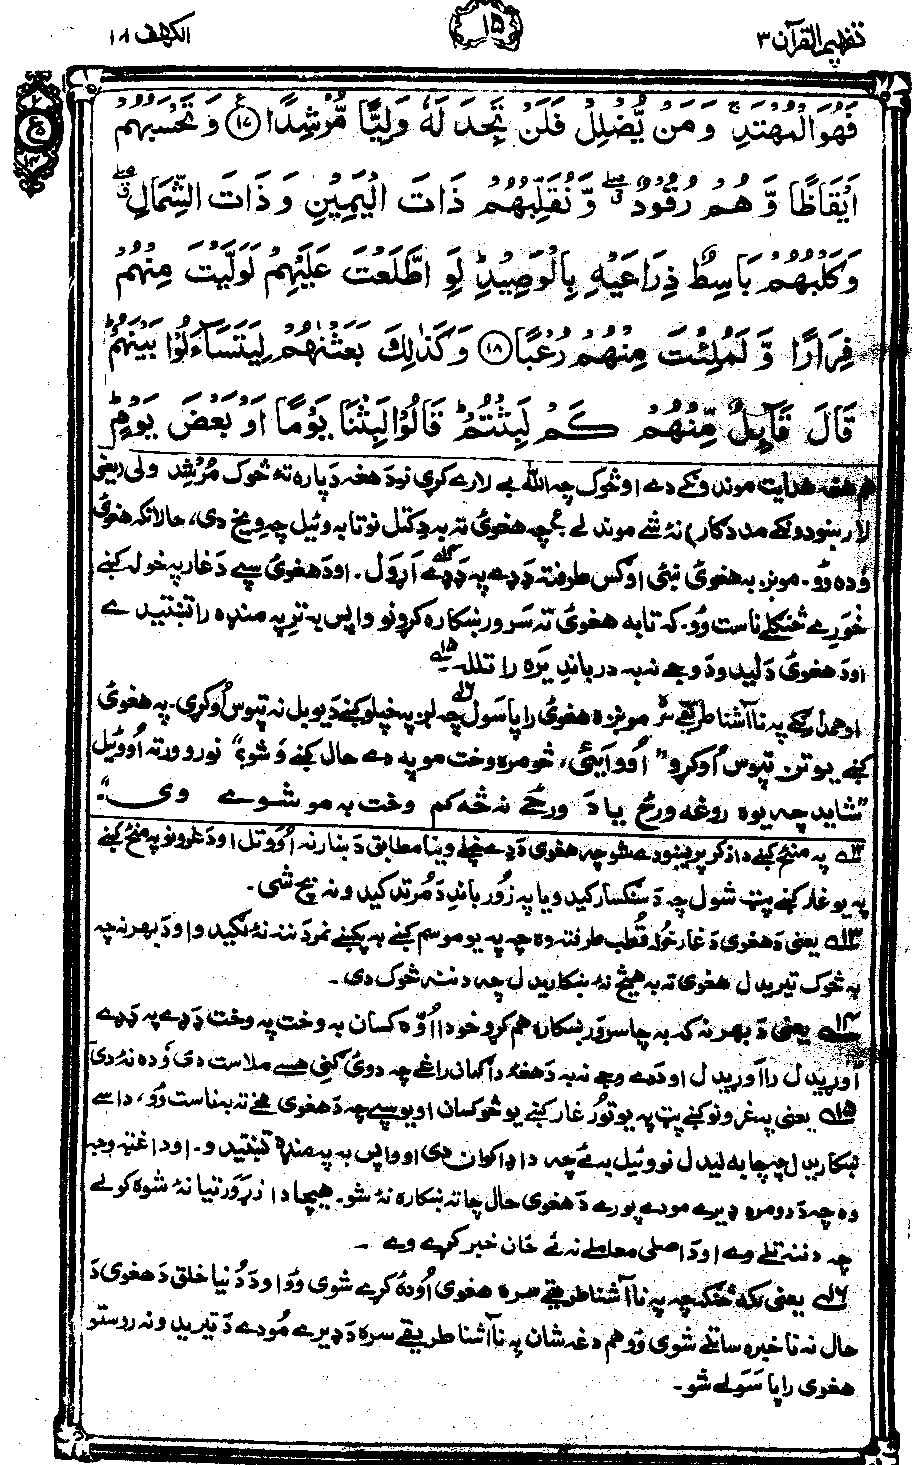 تفهيم القرآن ٣
١٥
الكهف ١٨
فَهُوَ الْمُهْتَدِ ۚ وَ مَنْ يُّضْلِلْ فَلَنْ تَجِدَ لَهٗ وَلِيًّا مُّرْشِدًا ﴿١٧﴾ وَ تَحْسَبُهُمْ
اَيْقَاظًا وَّ هُمْ رُقُوْدٌ ۖ وَّ نُقَلِّبُهُمْ ذَاتَ الْيَمِيْنِ وَ ذَاتَ الشِّمَالِ ۖ
وَ كَلْبُهُمْ بَاسِطٌ ذِرَاعَيْهِ بِالْوَصِيْدِ ؕ لَوِ اطَّلَعْتَ عَلَيْهِمْ لَوَلَّيْتَ مِنْهُمْ
فِرَارًا وَّ لَمُلِئْتَ مِنْهُمْ رُعْبًا ﴿١٨﴾ وَ كَذٰلِكَ بَعَثْنٰهُمْ لِيَتَسَآءَلُوْا بَيْنَهُمْ ؕ
قَالَ قَآئِلٌ مِّنْهُمْ كَمْ لَبِثْتُمْ ؕ قَالُوْا لَبِثْنَا يَوْمًا اَوْ بَعْضَ يَوْمٍ ؕ
هم هغه هدايت موندونکے دے او څوک چه الله بے لارے کړی نو د هغه د پاره ته څوک مُرْشِد ولی (يعنی
لار ښودونکے مددگار) نۀ شے موندلے چه هغوئ ته به دِ کتل نو تا به وئيل چه ويخ دی، حالانکه هغوئ
ودۀ وُو۔ مونږ به هغوئ ښئ او کس طرفته ډډے په ډډے اَړول۔ او د هغوئ سپے د غار په خوله کښے
خورے څنګلے ناست وُو۔ که تا به هغوئ ته سر ور ښکاره کړو نو واپس به ترِ په منډه را تښتيدے
او د هغوئ د ليدو د وجے نه به در باندِ يره را تلله۔
او همدا رنګے په نا آشنا طريقے مونږه هغوئ را پاسول چه لږ په خپلو کښے د يو بل نه تپوس اوکړی۔ په هغوئ
کښے يو تن تپوس اوکړو "اووايئ، څومره وخت مو په دے حال کښے وشو؟" نورو ورته اووئيل
"شايد چه يوه روغه ورځ يا دَ ورځے نه څه کم وخت به مو شوے وی"۔
په منځ کښے دا ذکر پريښودے شو چه هغوئ د دے خپلے وينا مطابق د ښار نه اووتل او د غرونو په منځ کښے
په يو غار کښے پټ شول چه د سنګسار کيدو يا په زور باندِ د مُرتد کيدو نه بچ شی۔
١٣ يعنی د هغوی د غار خوله قُطب طرفته وه چه په يو موسم کښے به پکښے نمر دننه نۀ لګيدو او د بهر نه چه
په څوک تيريدل هغوی ته به هيڅ نۀ ښکاريدل چه دننه څوک دی۔
١٤ يعنی د بهر نه که به چا سر ور ښکاره هم کړو خو دا اوۀ کسان به وخت په وخت ډډے په ډډے
اوريدل را اوريدل او د دے وجے نه به د هغۀ دا ګمان راغے چه دوئ کنی هسے ملاست دی وده نۀ دی
١٥ يعنی په غرونو کښے پټ په يو تور غار کښے يو څو کسان او يو سپے چه د هغوی مخے ته به ناست وُو، دا سے
ښکاريدل چه چا به ليدل نو وئيل به ئے چه دا ډاکوان دی او واپس به په منډه تښتيدو۔ او دا غټه وجه
وه چه د دومره ډيرے مودے پورے د هغوی حال چا ته ښکاره نۀ شو۔ هيچا دا زړه ور تيا نۀ شوه کولے
چه دننه تلے وے او د اصلی معاملے نه ئے ځان خبر کړے وے۔
١٦ يعنی لکه څنګه چه په نا آشنا طريقے سره هغوی اودۀ کړے شوی وُو او د دُنيا خلق د هغوی د
حال نه ناخبره ساتلے شوی وُو هم دغه شان په نا آشنا طريقے سره د ډيرے مُودے د تيريدو نه روستو
هغوی راپاسولے شو۔